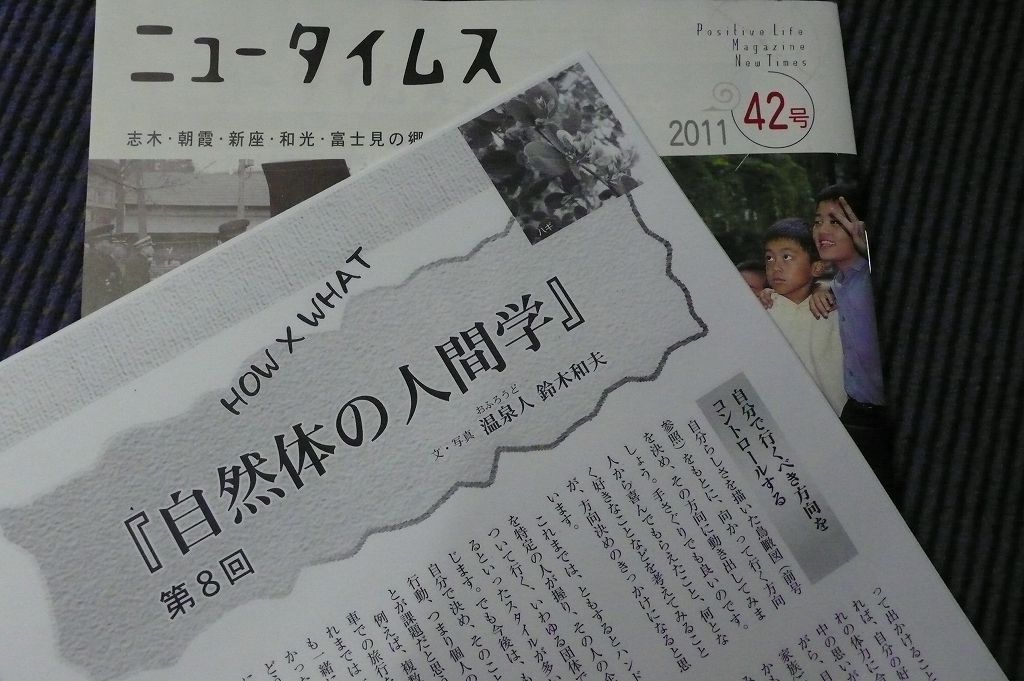 ニュータイムス
Positive Life
Magazine
New Times
2011
42号
志木・朝霞・新座・和光・富士見の郷
ハギ
HOW X WHAT
『自然体の人間学』
第8回
おふろうど
文・写真 温泉人 鈴木和夫
自分で行くべき方向を
コントロールする
自分らしさを描いた鳥瞰図（前号
参照）をもとに、向かって行く方向
を決め、その方向に動き出してみま
しょう。手さぐりでも良いのです。
人から喜んでもらえたこと、何とな
く好きなことなどを考えてみること
が、方向決めのきっかけになると思
います。
これまでは、ともするとハンド
を特定の人が握り、その人の企
ついて行く、いわゆる団体で
るといったスタイルが多い
じます。でも今後は、も
自分で決め、そのこと
行動、つまり個人の
とが課題だと思う
例えば、複数
車での旅行な
れまでは
も一緒に
かった
どう
って出かけること
は、自分の好
れの体力に合
中の思いが
がら、目
家族
かも